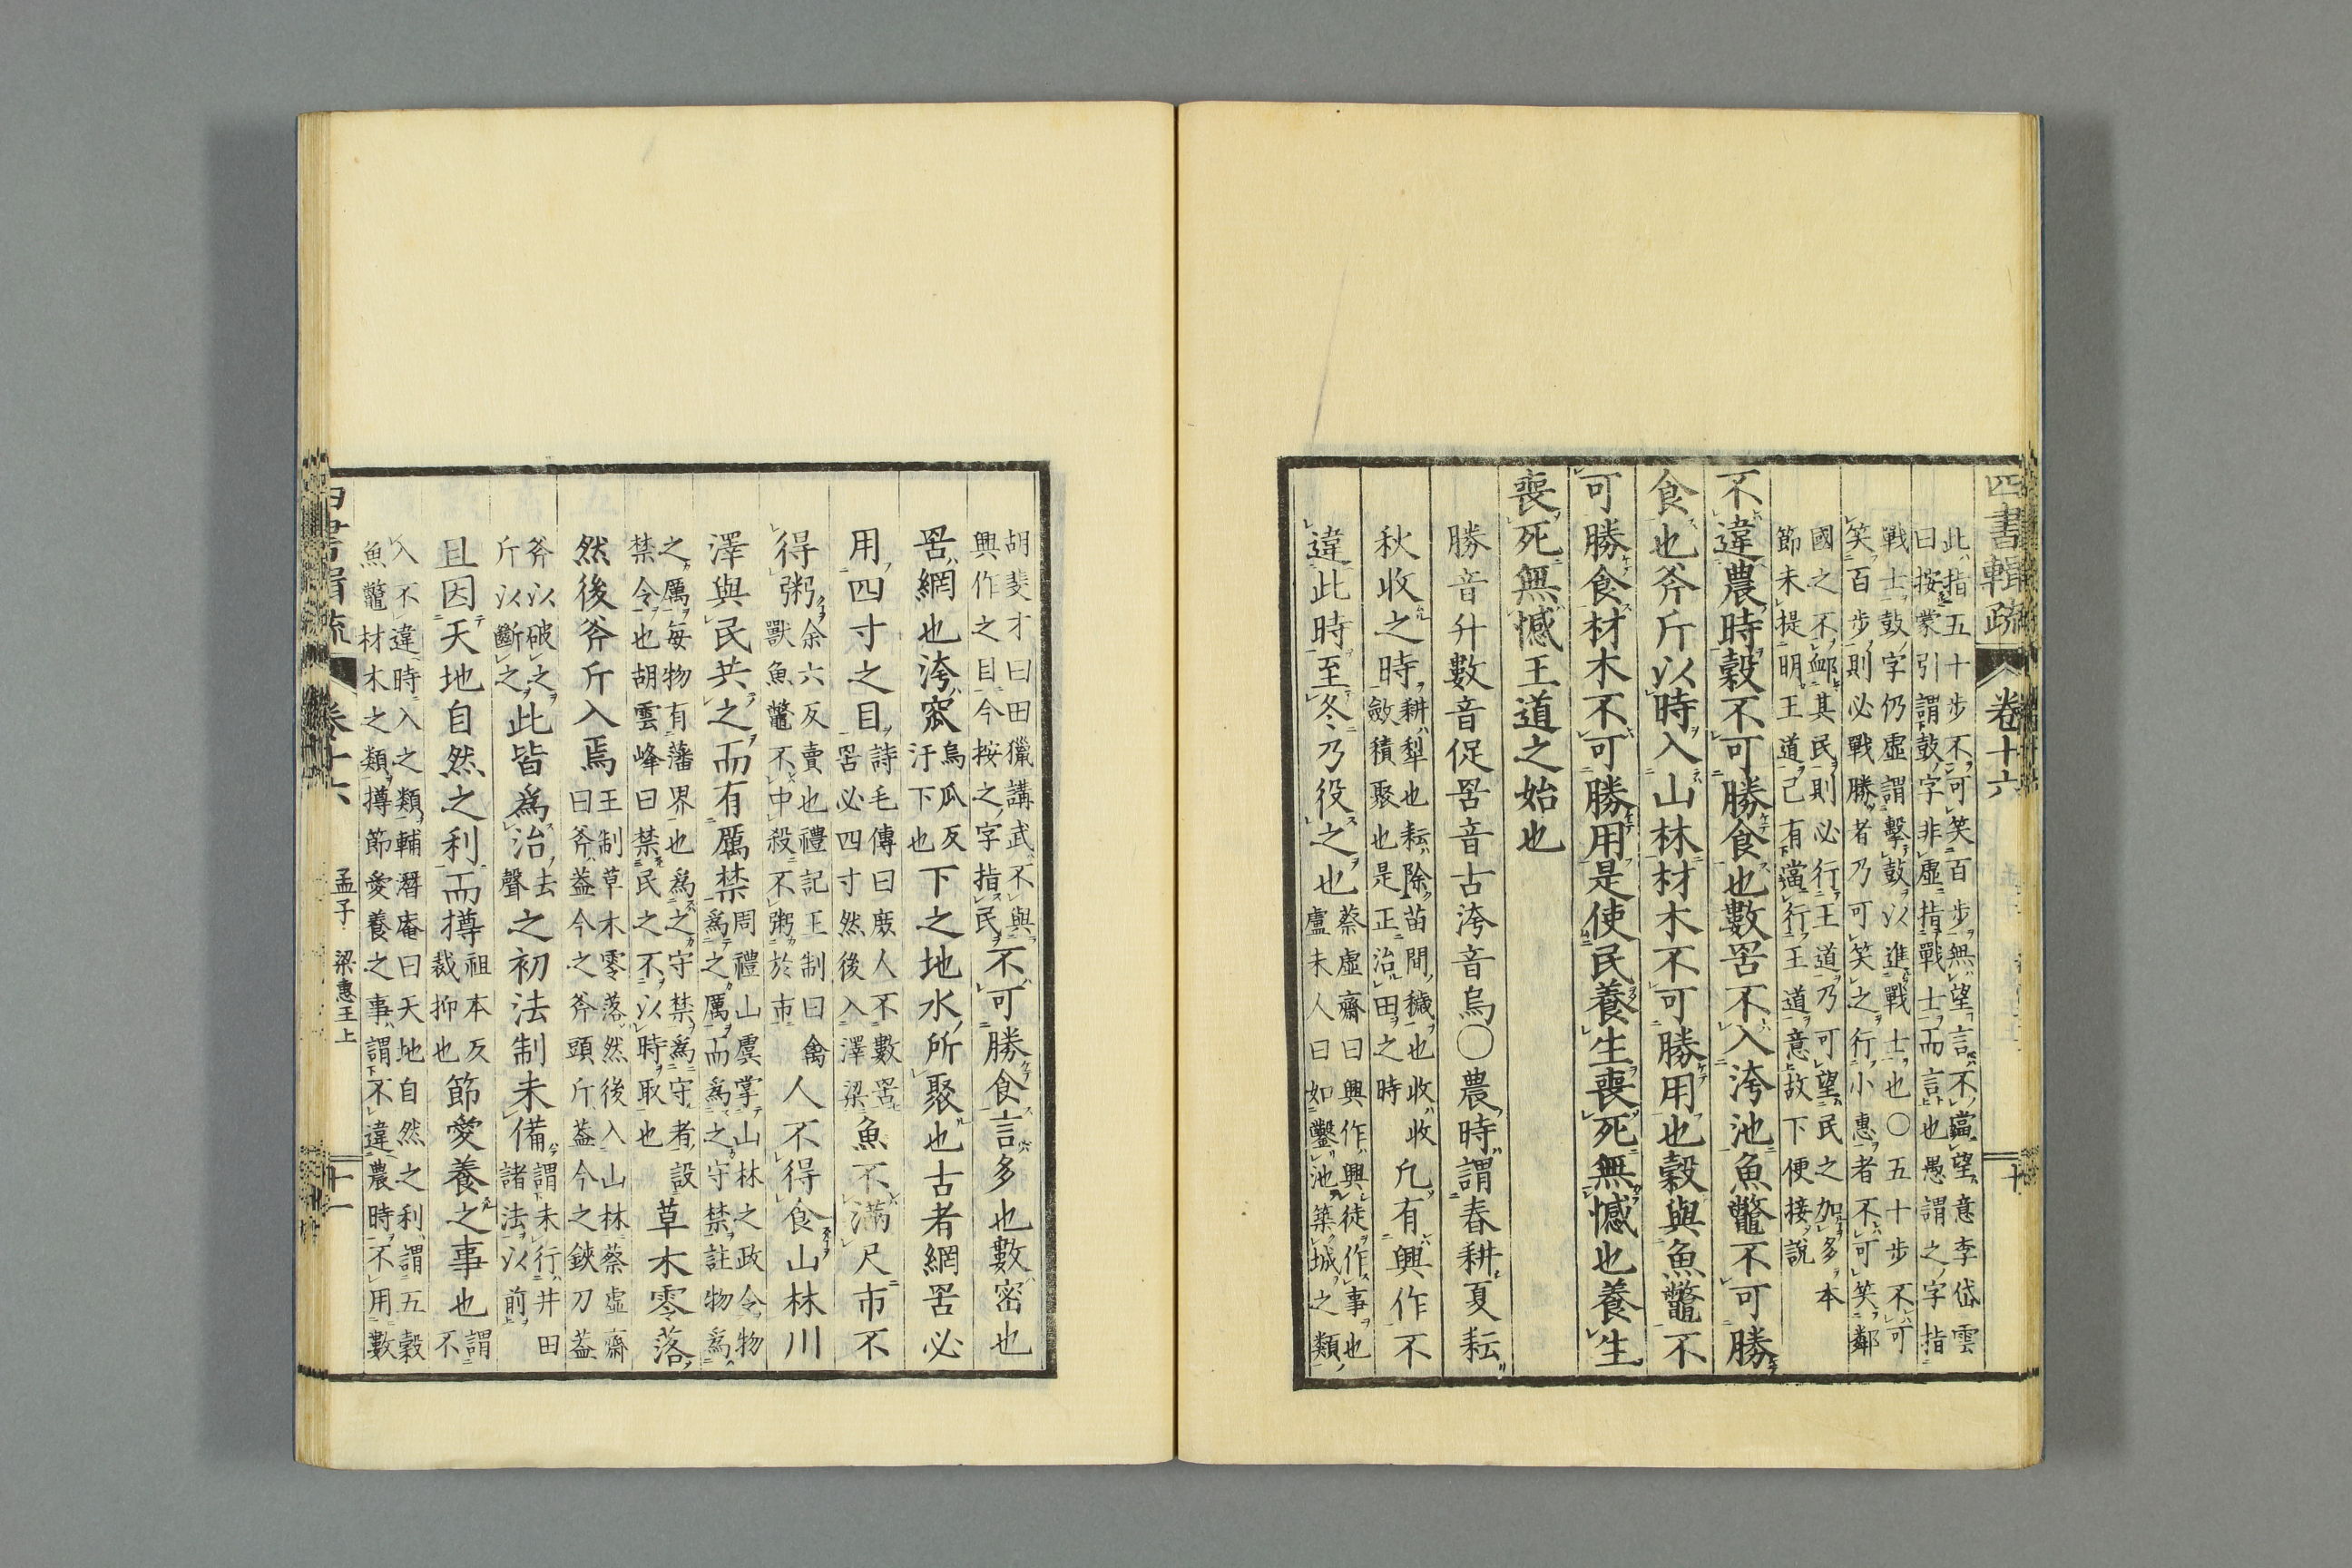 四書輯疏 卷十六 十
此指五十步不可笑百步無望言不當望意李岱雲
曰按蒙引謂鼓字非虛指戰士而言也愚謂之字指
戰士鼓字仍虛謂擊鼓以進戰士也○五十步不可
笑百步則必戰勝者乃可笑之行小惠者不可笑鄰
國之不䘏其民則必行王道乃可望民之加多本
節未提明王道已有當行王道意故下便接說
不違農時穀不可勝食也數罟不入洿池魚鼈不可勝
食也斧斤以時入山林材木不可勝用也穀與魚鼈不
可勝食材木不可勝用是使民養生喪死無憾也養生
喪死無憾王道之始也
勝音升數音促罟音古洿音烏○農時謂春耕夏耘
秋收之時
耕犁也耘除苗間穢也收收
斂積聚也是正治田之時
凡有興作不
違此時至冬乃役之也
蔡虛齋曰興作興徒作事也
盧未人曰如鑿池築城之類
胡斐才曰田獵講武不與
興作之目今按之字指民
不可勝食言多也數密也
罟網也洿窊
烏瓜反
汙下也
下之地水所聚也古者網罟必
用四寸之目
詩毛傳曰庶人不數罟
罟必四寸然後入澤梁
魚不滿尺市不
得粥
余六反賣也禮記王制曰禽
獸魚鼈不中殺不粥於市
人不得食山林川
澤與民共之而有厲禁
周禮山虞掌山林之政令物
爲之厲而爲之守禁註物爲
之厲每物有藩界也爲之守禁爲守者設
禁令也胡雲峰曰禁民之不以時取也
草木零落
然後斧斤入焉
王制草木零落然後入山林蔡虛齋
曰斧蓋今之斧頭斤蓋今之鋏刀蓋
斧以破之
斤以斷之
此皆爲治
去
聲
之初法制未備
謂未行井田
諸法以前
且因天地自然之利而撙
祖本反
裁抑也
節愛養之事也
謂
不
入不違時入之類輔潛庵曰天地自然之利謂五穀
魚鼈材木之類撙節愛養之事謂不違農時不用數
卷十六 孟子 梁惠王上 十一